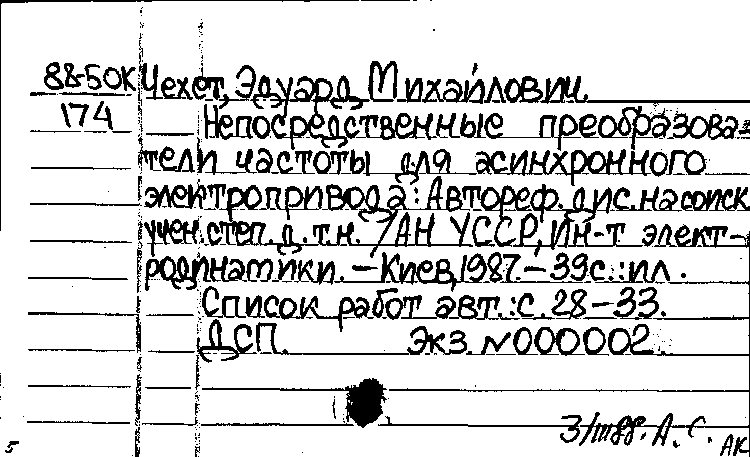 88-50К Чехет, Эдуард Михайлович.
174 Непосредственные преобразова=
тели частоты для асинхронного
электропривода: Автореф. дис. на соиск
учен. степ. д.т.н. /АН УССР, Ин-т элект-
родинатики. – Киев, 1987. – 39с.: ил.
Список работ авт.: с. 28–33.
ДСП. Экз. №000002.
3/III88. А. С.
АК
5